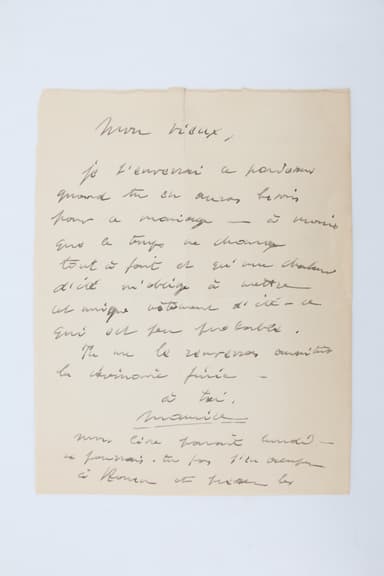 Mon vieux,
je t'enverrai ce pardessus
quand tu en auras besoin
pour ce mariage — à moins
que le temps ne change
tout à fait et qu'une chaleur
d'été m'oblige à mettre
cet unique vêtement d'été — ce
qui est peu probable.
Tu me le renverras aussitôt
la cérémonie finie —
à toi.
Maurice
Mon livre paraît lundi —
ne pourrais-tu pas t'en occuper
à Rouen et les